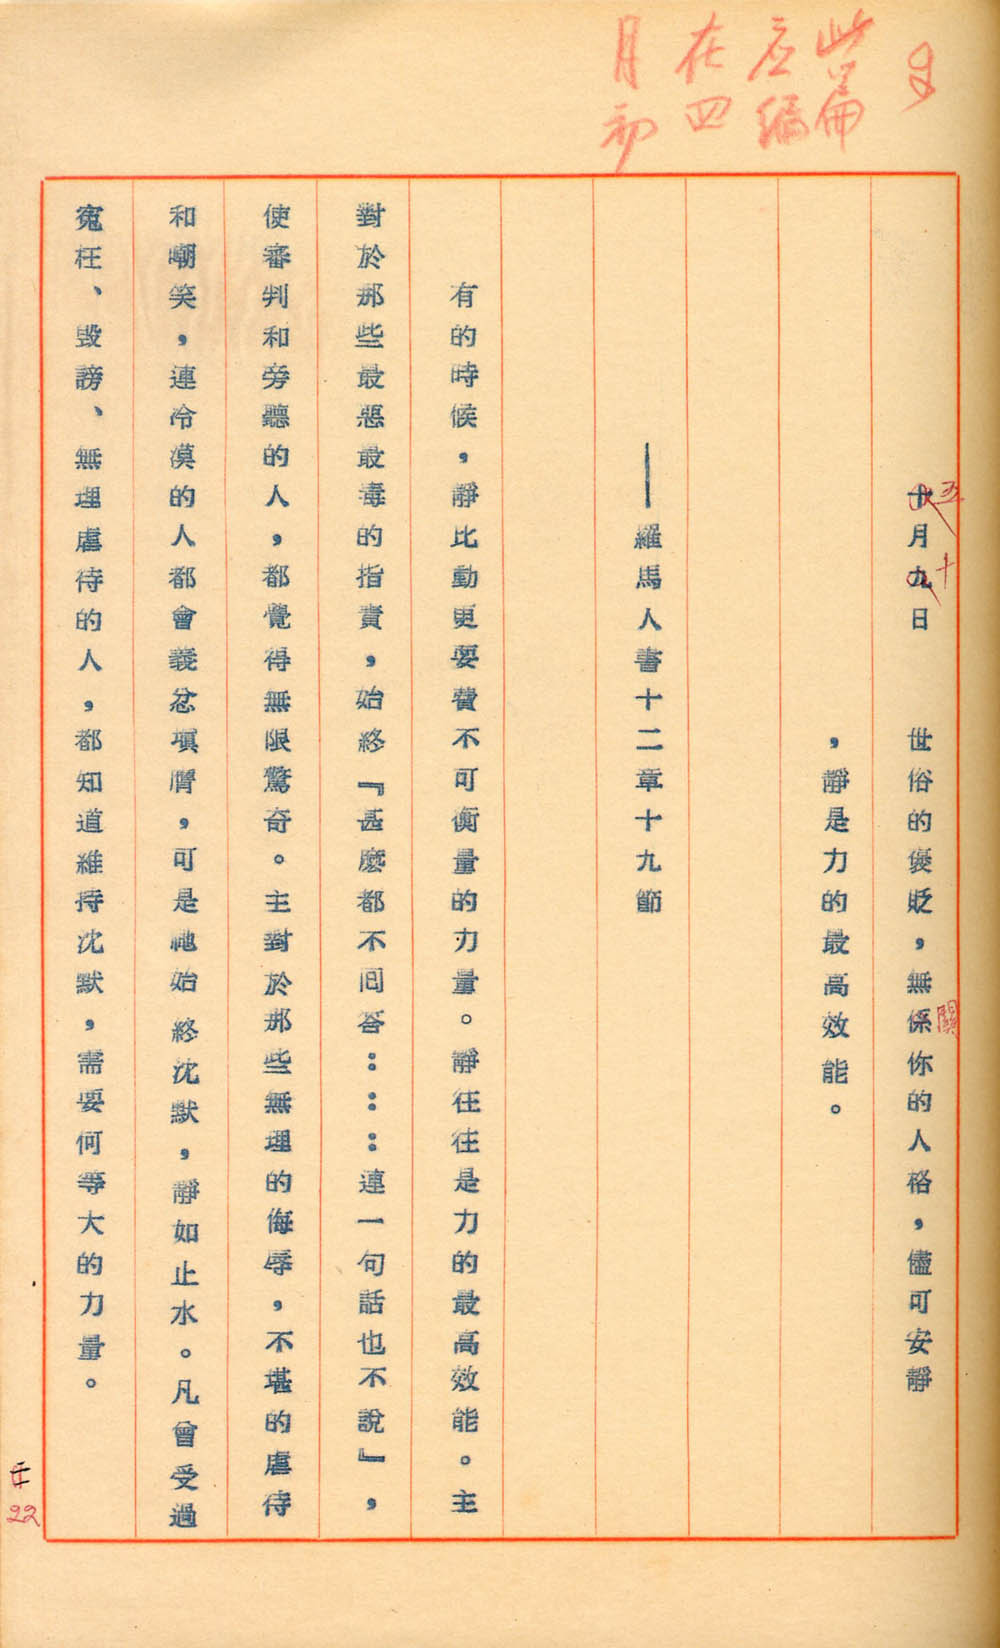 此篇
应编
在四
月初
十月九日 世俗的褒貶，無係你的人格，儘可安靜
五
十
關
，靜是力的最高效能。
——羅馬人書十二章十九節
有的時候，靜比動更要費不可衡量的力量。靜往往是力的最高效能。主
對於那些最惡最毒的指責，始終『甚麼都不回答：：：連一句話也不說』，
使審判和旁聽的人，都覺得無限驚奇。主對於那些無理的侮辱，不堪的虐待
和嘲笑，連冷漠的人都會義忿填膺，可是祂始終沈默，靜如止水。凡曾受過
寃枉、毀謗、無理虐待的人，都知道維持沈默，需要何等大的力量。
22